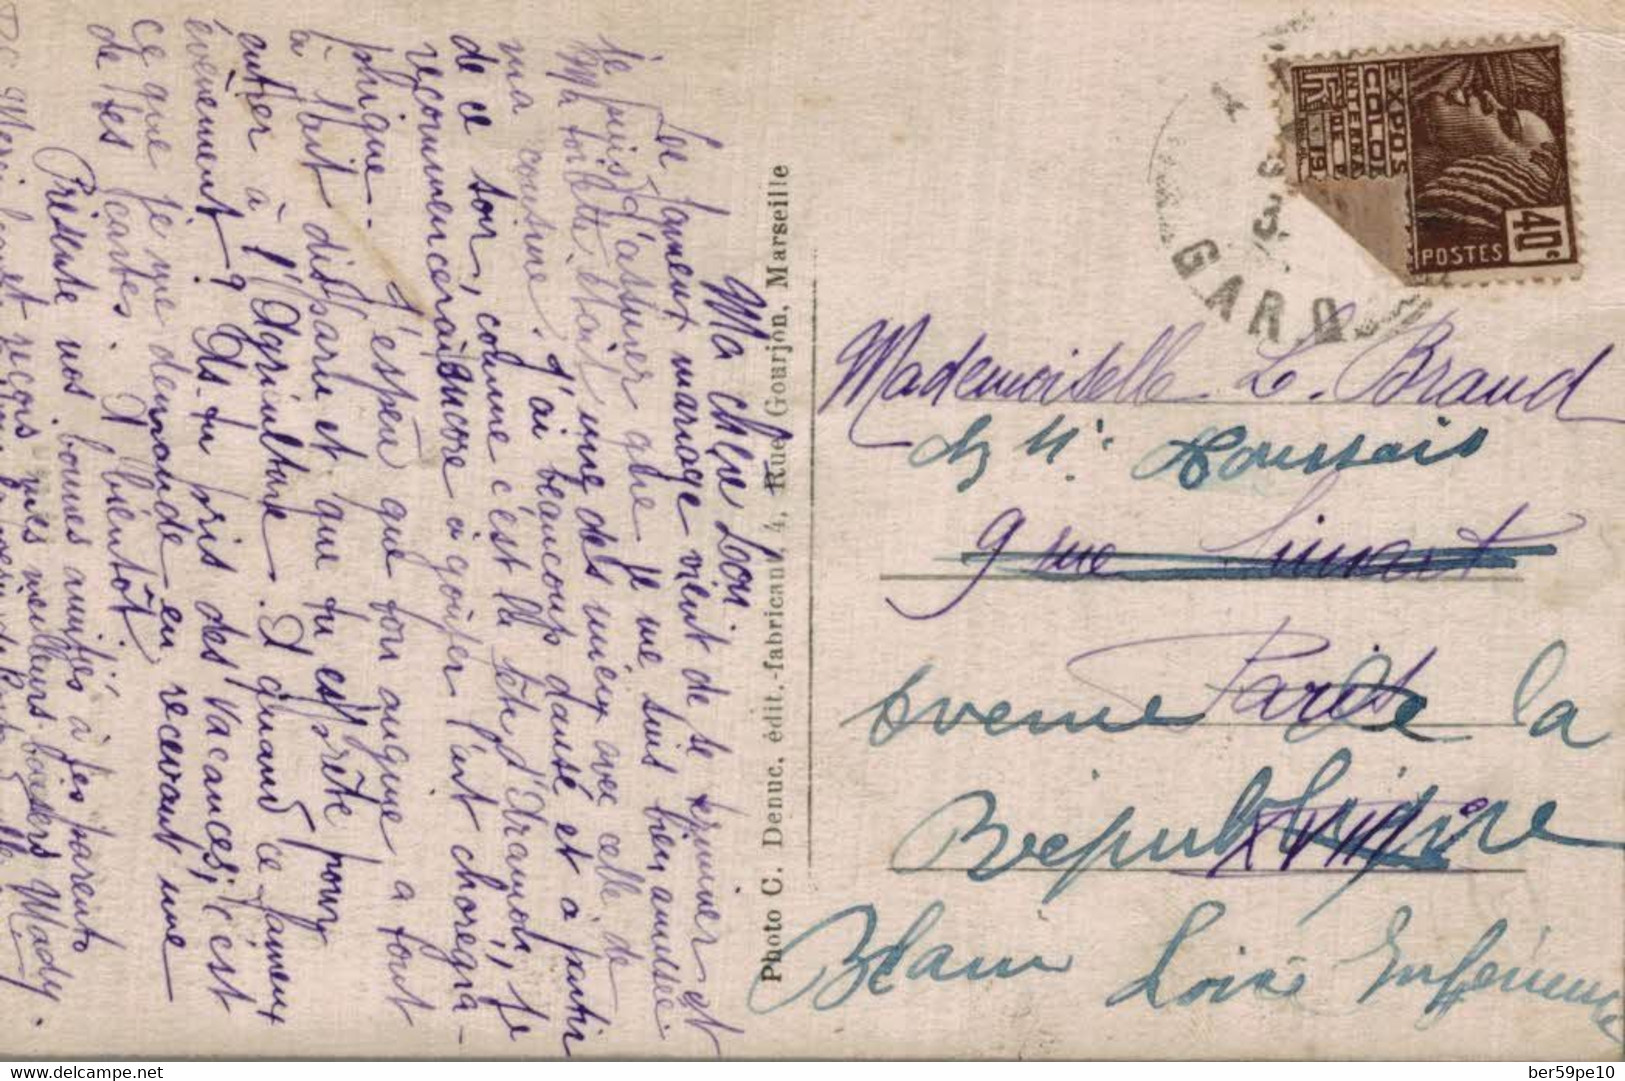 Ma chère Loon
Le fameux mariage vient de se terminer et
je puis t'assurer que je me suis bien amusée
Ma toilette était une des mieux avec celle de
ma cousine. J'ai beaucoup dansé et à partir
de ce soir, comme c'est la fête d'Aramon, je
recommencerai encore à goûter l'art chorégra-
phique. J'espère que ton angine a tout
à fait disparu et que tu es prête pour
entrer à l'Agriculture. A quand ce fameux
événement? As-tu pris des vacances, c'est
ce que je me demande en recevant une
de tes cartes. A bientôt
Présente nos bonnes amitiés à tes parents
et reçois mes meilleurs baisers Mady.
Photo C. Denuc, édit.-fabricant, 4, Rue Gourjon, Marseille
EXPOS
COLO
INTERNA
19
POSTES
40c
GARD
Mademoiselle Le Braud
chez Mr Houssais
9 rue Linart
Paris
Avenue de la
République
XVIIIe
Blain Loire Inférieure
Delcampe.net
ber59pe10